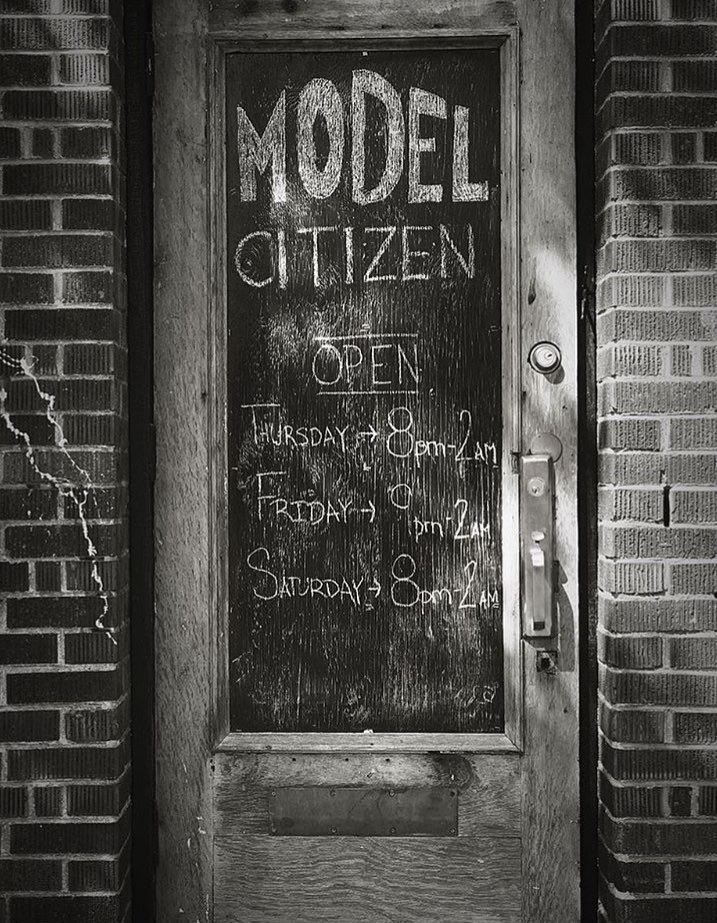 MODEL
CITIZEN
OPEN
THURSDAY → 8pm-2AM
FRIDAY → pm-2AM
SATURDAY → 8pm-2AM